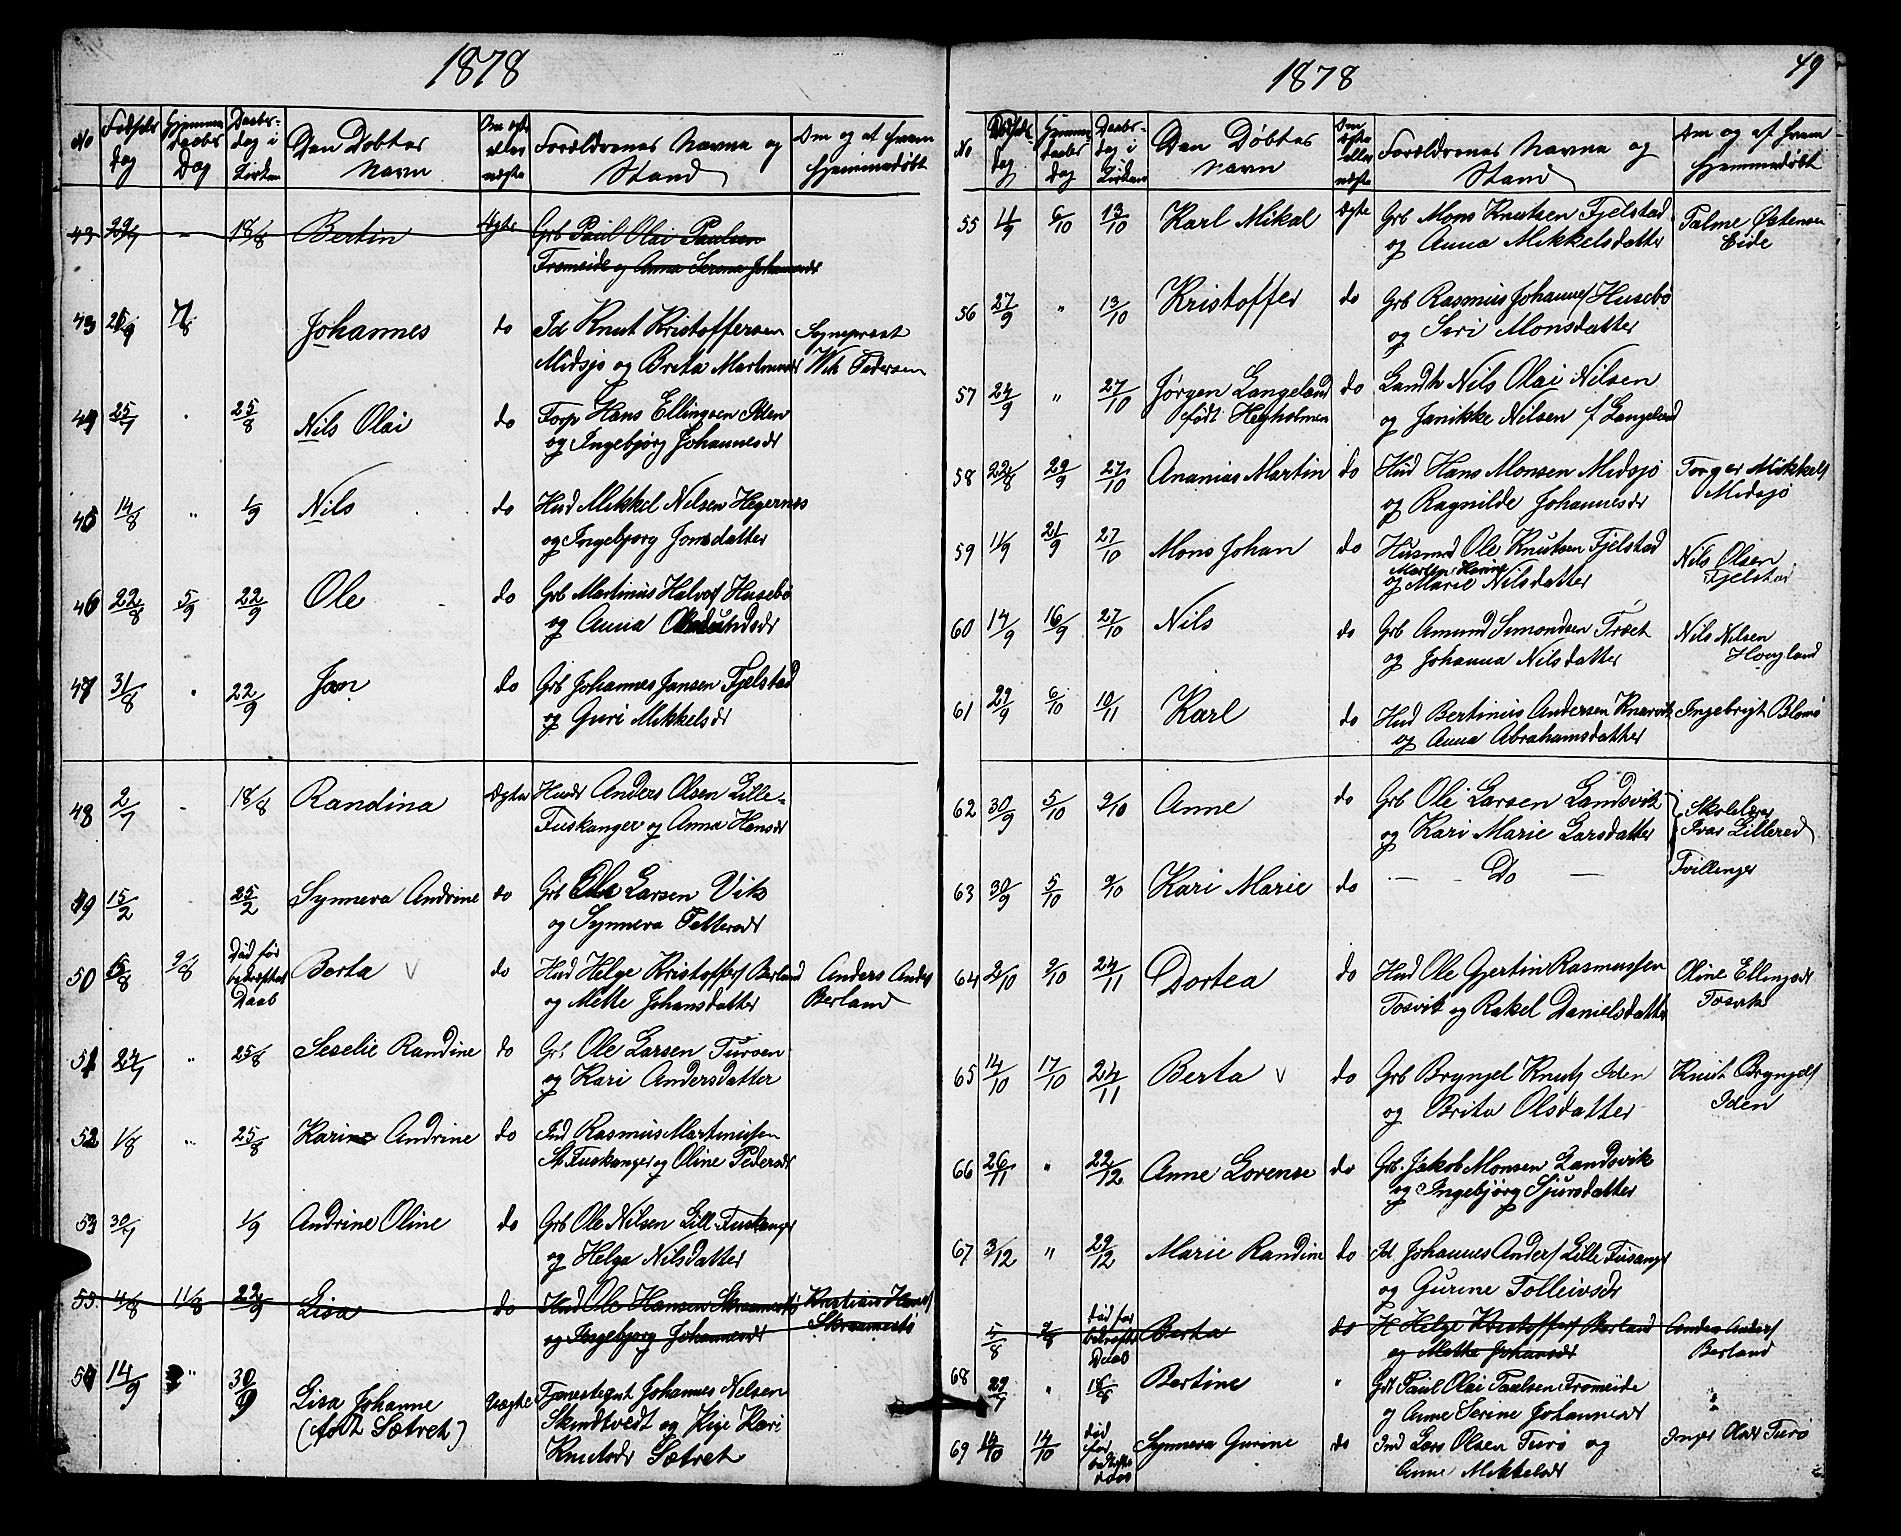 1878
No
Fødsels
dag
Hjemme
daabs
Dag
Daabs-
dag i
Kirken
Den Døbtes
Navn
Om ægte
eller
uægte
Forældrenes Navne og
Stand
Om og af hvem
hjemmedøbt
43 29/7 - 18/8 Bertin Ægte Grb Paul Olai Paulsen
Tromeide og Anna Serena Johannesdr
43 7/8 Johannes do Id Knut Kristoffersen
Midsjo og Brita Martinusdr Wik Pedersen
44 25/7 " 25/8 Nils Olai do Forp Hans Ellingsen Iden
og Ingebjørg Johannesdr
45 14/8 " 1/9 Nils do Husd Mikkel Nilsen Hegernes
og Ingebjorg Jonsdatter
46 22/8 5/9 22/9 Ole do Grb Martinus Halvors Husebø
og Anna
47 31/8 " 22/9 Jan do Grb Johannes Jansen Fjelstad
og Guri Mikkelsdr
48 2/7 - 18/8 Randina Ægte Husdr Anders Olsen Lille-
Fuskanger og Anna Hansdr
49 15/2 25/2 Synneva Andrine do Grb Ole Larsen Vik
og Synneva Pettersdr
50 6/8 9/8 Død før
bekræftet
Daab
Berta do Husd Helge Kristoffers Berland Anders Anders
og Mette Johansdatter Berland
51 24/7 " 25/8 Seselie Randine do Grb Ole Larsen Turøen
og Kari Andersdatter
52 1/8 " 25/8 Karine Andrine do Ind Rasmus Martinussen
St. Fuskanger og Oline Pedersdr
53 30/7 1/9 Andrine Oline do Grb Ole Nilsen Lill-Fuskanger
og Helga Nilsdatter
55. 4/8 11/8 22/9 Lisa do Husd Ole Hansen Skraamestø Kristian Hans
og Ingebjorg Johannesdr Skraamestø
54 14/9 " 30/9 Lisa Johanne Uægte Johannes Nilsen
(født Sætret) Skindtvedt og Pige Kari
Knutsdr Sætret
1878
49
No
Fødsels
dag
Hjemme
daabs
dag
Daabs-
dag i
Kirken
Den Døbtes
Navn
Om
ægte
eller
uægte
Forældrenes Navne og
Stand
Om og af hvem
hjemmedøbt
55 4/9 6/10 13/10 Karl Mikal Ægte Grb Mons Knutsen Fjelstad Palme Østensen
og Anna Mikkelsdatter Eide
56 27/9 " 13/10 Kristoffer do Grb Rasmus Johannes Husebø
og Siri Monsdatter
57 24/9 " 27/10 Jørgen Langeland do Landh Nils Olai Nilsen
født Hegholmen og Janikke Nilsen f Langeland
58 22/8 29/9 27/10 Ananias Martin do Husd Hans Monsen Midsjø Torger Mikkels
og Ragnilde Johannesdr Midsjø
59 1/9 21/9 27/10 Mons Johan do Husmd Ole Knutsen Fjelstad Nils Olsen
og Marie Nilsdatter Fjelstad
60 14/9 16/9 27/10 Nils do Grb Amund Simondsen Træt Nils Nilsen
og Johanna Nilsdatter Hougland
61 29/9 6/10 10/11 Karl do Husd Bertinius Andersen Knarvik Ingebrigt Blomø
og Anna Abrahamsdatter
62 30/9 5/10 9/10 Anne do Grb Ole Larsen Landsvik Skolelærer
og Kari Marie Larsdatter Ivar Lillered
63 30/9 5/10 9/10 Kari Marie do — Do — Tvillinger
64 2/10 9/10 24/11 Dortea do Husd Ole Gjertin Rasmussen Oline Ellingsdr
Tosvik og Rakel Danielsdatter Tosvik
65 14/10 17/10 24/11 Berta do Grb Brynjel Knuts Iden Knut Brynjels
og Brita Olsdatter Iden
66 26/11 " 22/12 Anne Lorense do Grb. Jakob Monsen Landsvik
og Ingebjørg Sjursdatter
67 3/12 " 29/12 Marie Randine do Id Johannes Anders Lille Fusanger
og Gurine Tolleivsdr
5/8 9/8 død før
bekræftet
Daab
Berta do H Helge Kristoffers Berland Anders Anders
og Mette Johansdr Berland
68 29/7 " 18/8 Bertine " Grb Paul Olai Paulsen Tromeide "
og Anne Serine Johannesdr
69 14/10 14/10 død
før
bekræftet
Daab
Synneva Gurine do Ind Lars Olsen Turø og Inger Olsdr Turø
Anne Mikkelsdr